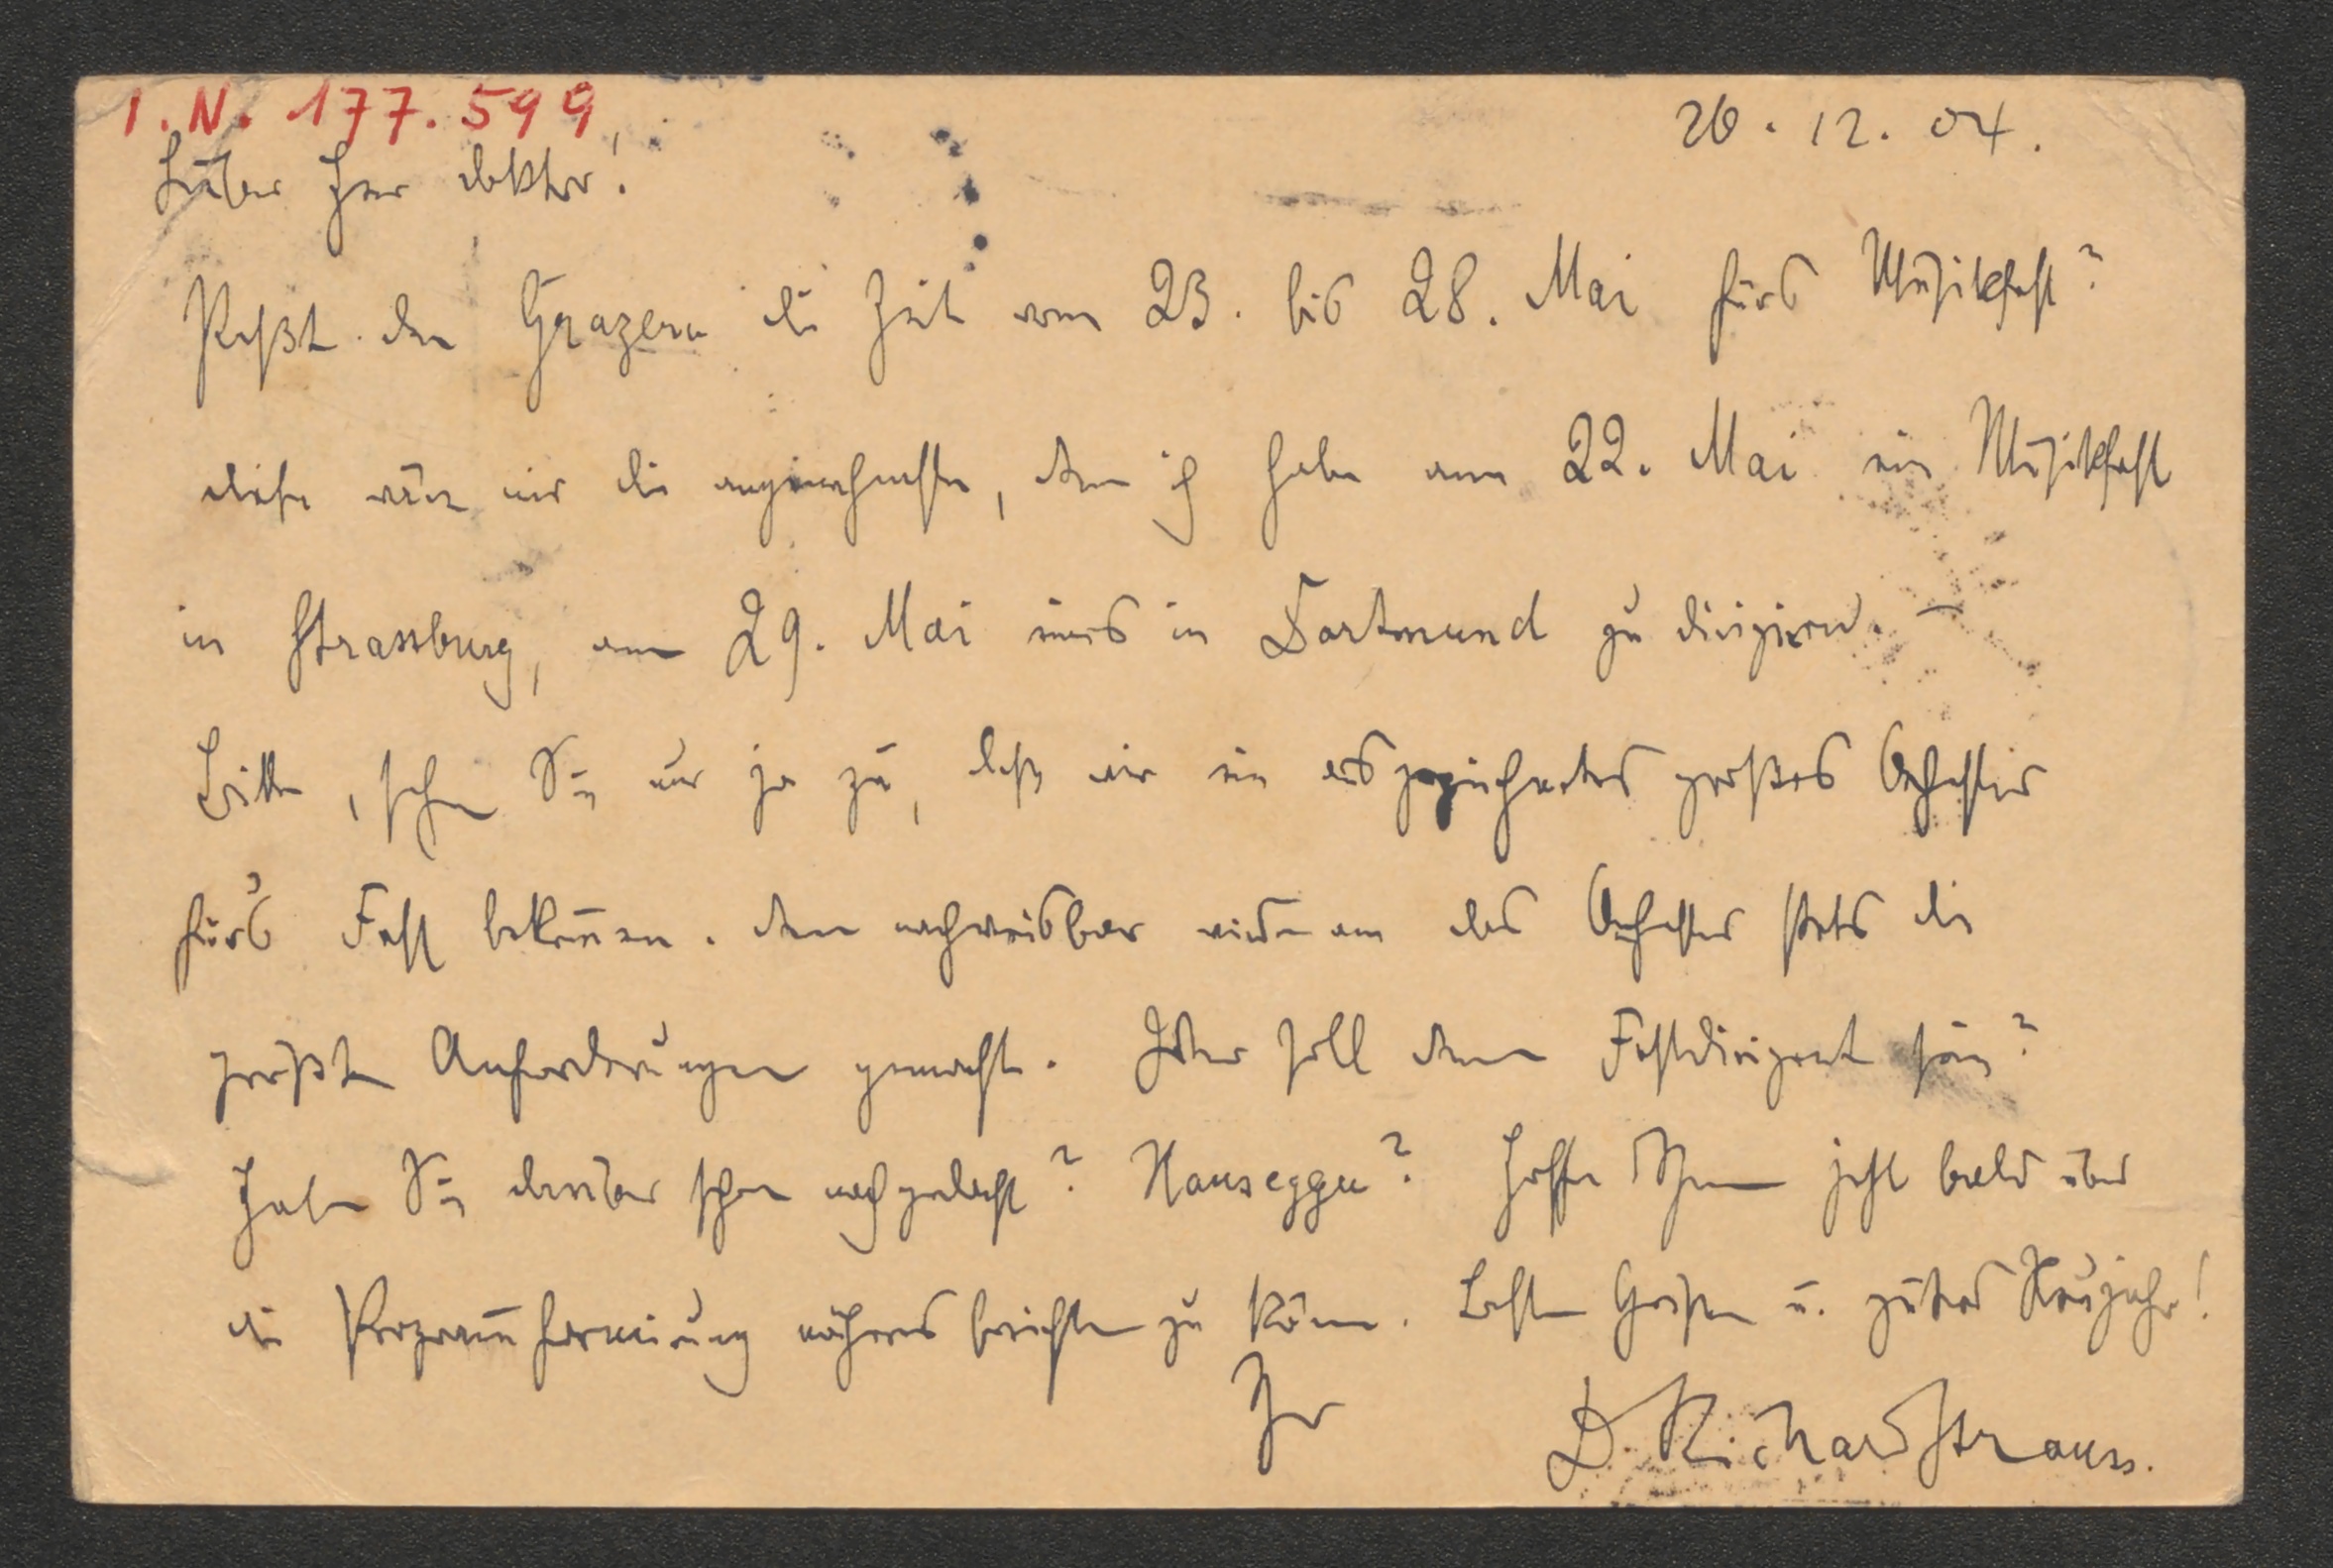 I. N. 177.599
26. 12. 04.
Lieber Herr Doktor!
Paßt den Grazern die Zeit vom 23. bis 28. Mai fürs Musikfest?
diese wäre mir die angenehmste, denn ich habe am 22. Mai ein Musikfest
in Strassburg, am 29. Mai eines in Dortmund zu dirigieren. —
Bitte, sehen Sie nur ja zu, daß wir ein ausgezeichnetes großes Orchester
fürs Fest bekom̅en. denn nachweisbar werden an das Orchester stets die
größten Anforderungen gemacht. Wer soll denn Festdirigent sein?
Haben Sie darüber schon nachgedacht? Hausegger? Hoffe Ihnen jetzt bald über
die Program̅formirung näheres berichten zu können. Besten Grüßen u. gutes Neujahr!
Ihr
D. Richard Strauss.